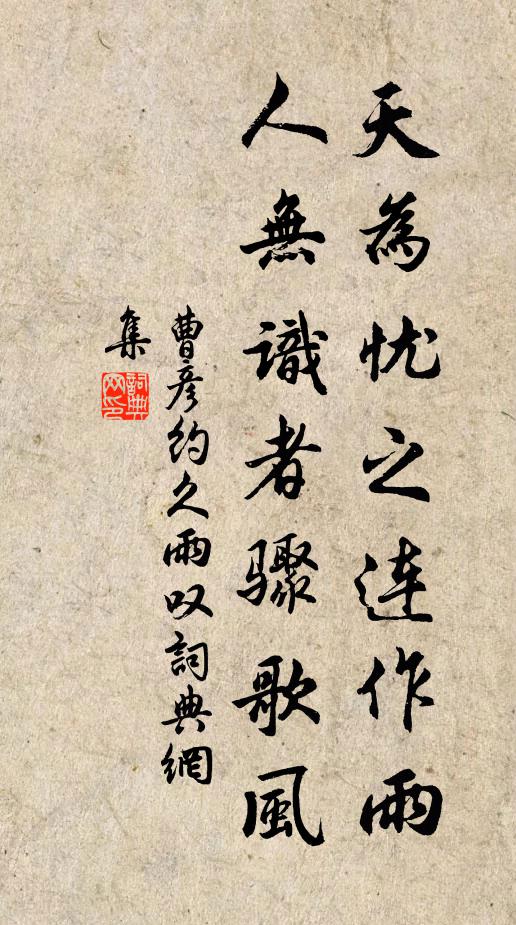 天為忧之連作雨
人無識者驟歌風
曹彦约久雨叹詞典網
集
詞典網印